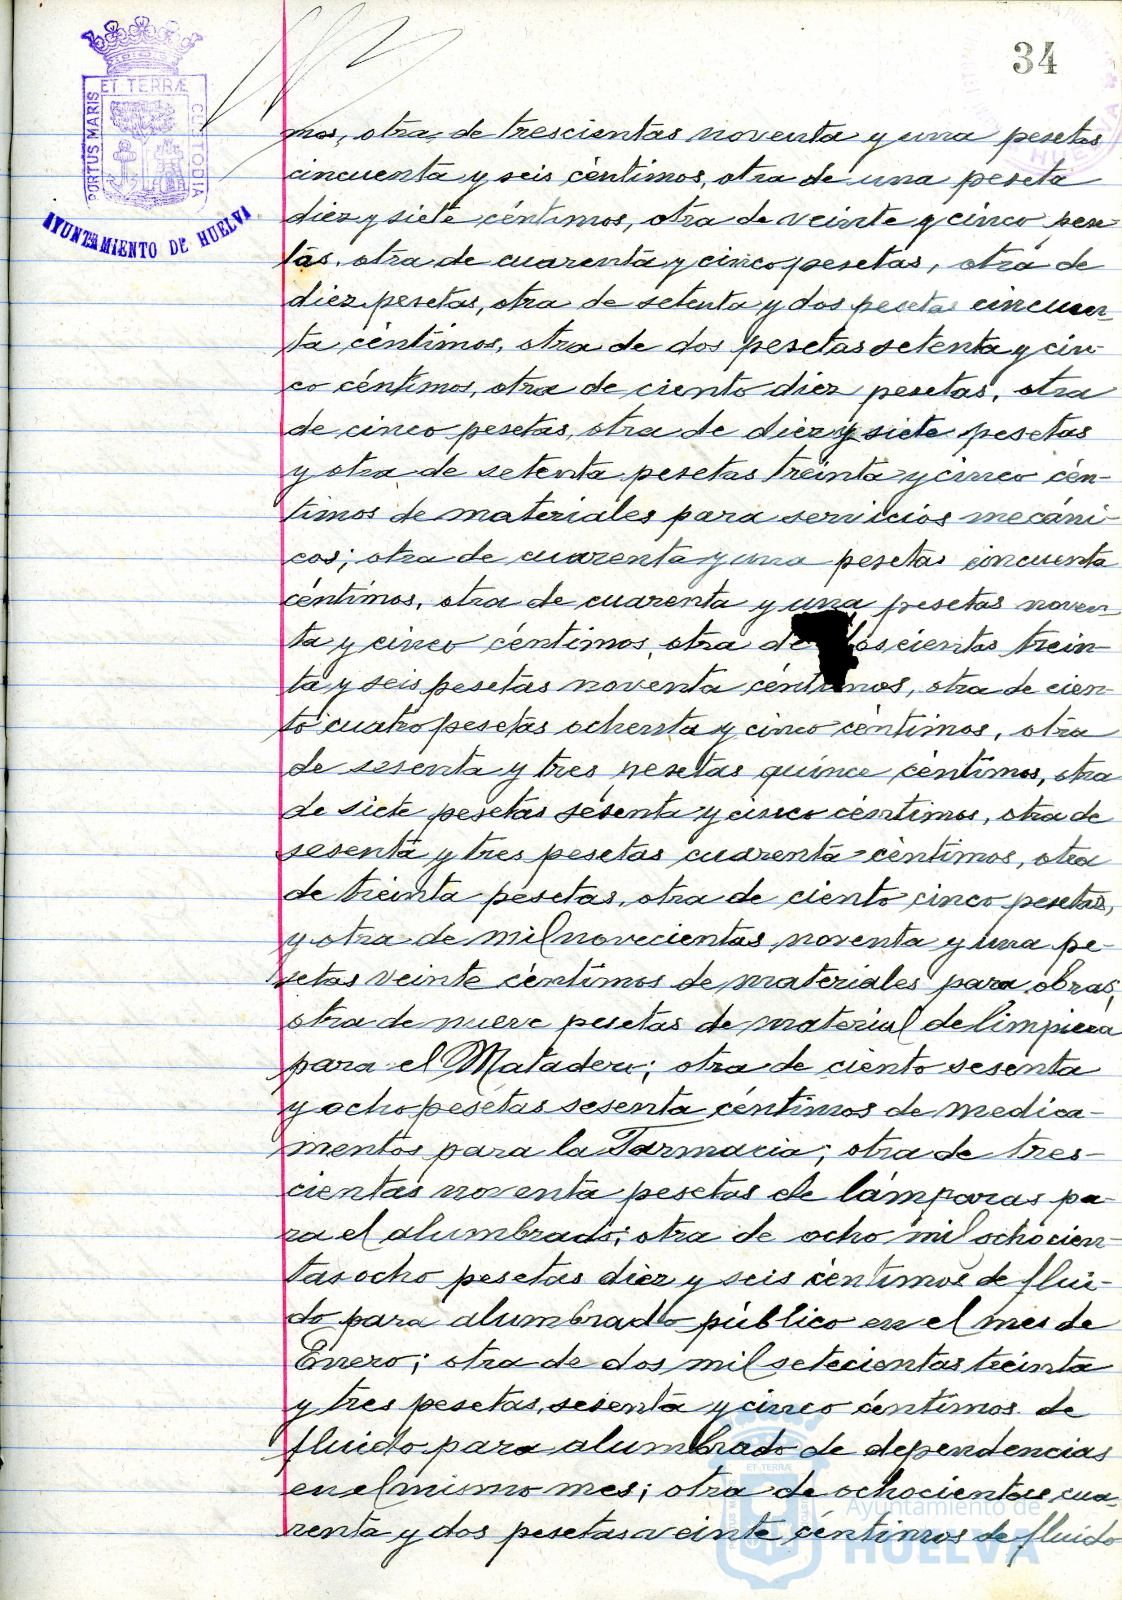 34
ET TERRÆ
PORTUS MARIS
CUSTODIA
AYUNTAMIENTO DE HUELVA
mos, otra de trescientas noventa y una pesetas
cincuenta y seis céntimos, otra de una peseta
diez y siete céntimos, otra de veinte y cinco pese-
tas, otra de cuarenta y cinco pesetas, otra de
diez pesetas, otra de setenta y dos pesetas cincuen-
ta céntimos, otra de dos pesetas setenta y cin-
co céntimos, otra de ciento diez pesetas, otra
de cinco pesetas, otra de diez y siete pesetas
y otra de setenta pesetas treinta y cinco cén-
timos de materiales para servicios mecáni-
cos; otra de cuarenta y una pesetas cincuenta
céntimos, otra de cuarenta y una pesetas noven-
ta y cinco céntimos, otra de doscientas trein-
ta y seis pesetas noventa céntimos, otra de cien-
to cuatro pesetas ochenta y cinco céntimos, otra
de sesenta y tres pesetas quince céntimos, otra
de siete pesetas sesenta y cinco céntimos, otra de
sesenta y tres pesetas cuarenta céntimos, otra
de treinta pesetas, otra de ciento cinco pesetas,
y otra de mil novecientas noventa y una pe-
setas veinte céntimos de materiales para obras;
otra de nueve pesetas de material de limpieza
para el Matadero; otra de ciento sesenta
y ocho pesetas sesenta céntimos de medica-
mentos para la Farmacia; otra de tres-
cientas noventa pesetas de lámparas pa-
ra el alumbrado; otra de ocho mil ochocien-
tas ocho pesetas diez y seis céntimos de flúi-
do para alumbrado público en el mes de
Enero; otra de dos mil setecientas treinta
y tres pesetas, sesenta y cinco céntimos de
fluido para alumbrado de dependencias
en el mismo mes; otra de ochocientas cua-
renta y dos pesetas veinte céntimos de fluido
Ayuntamiento de
HUELVA